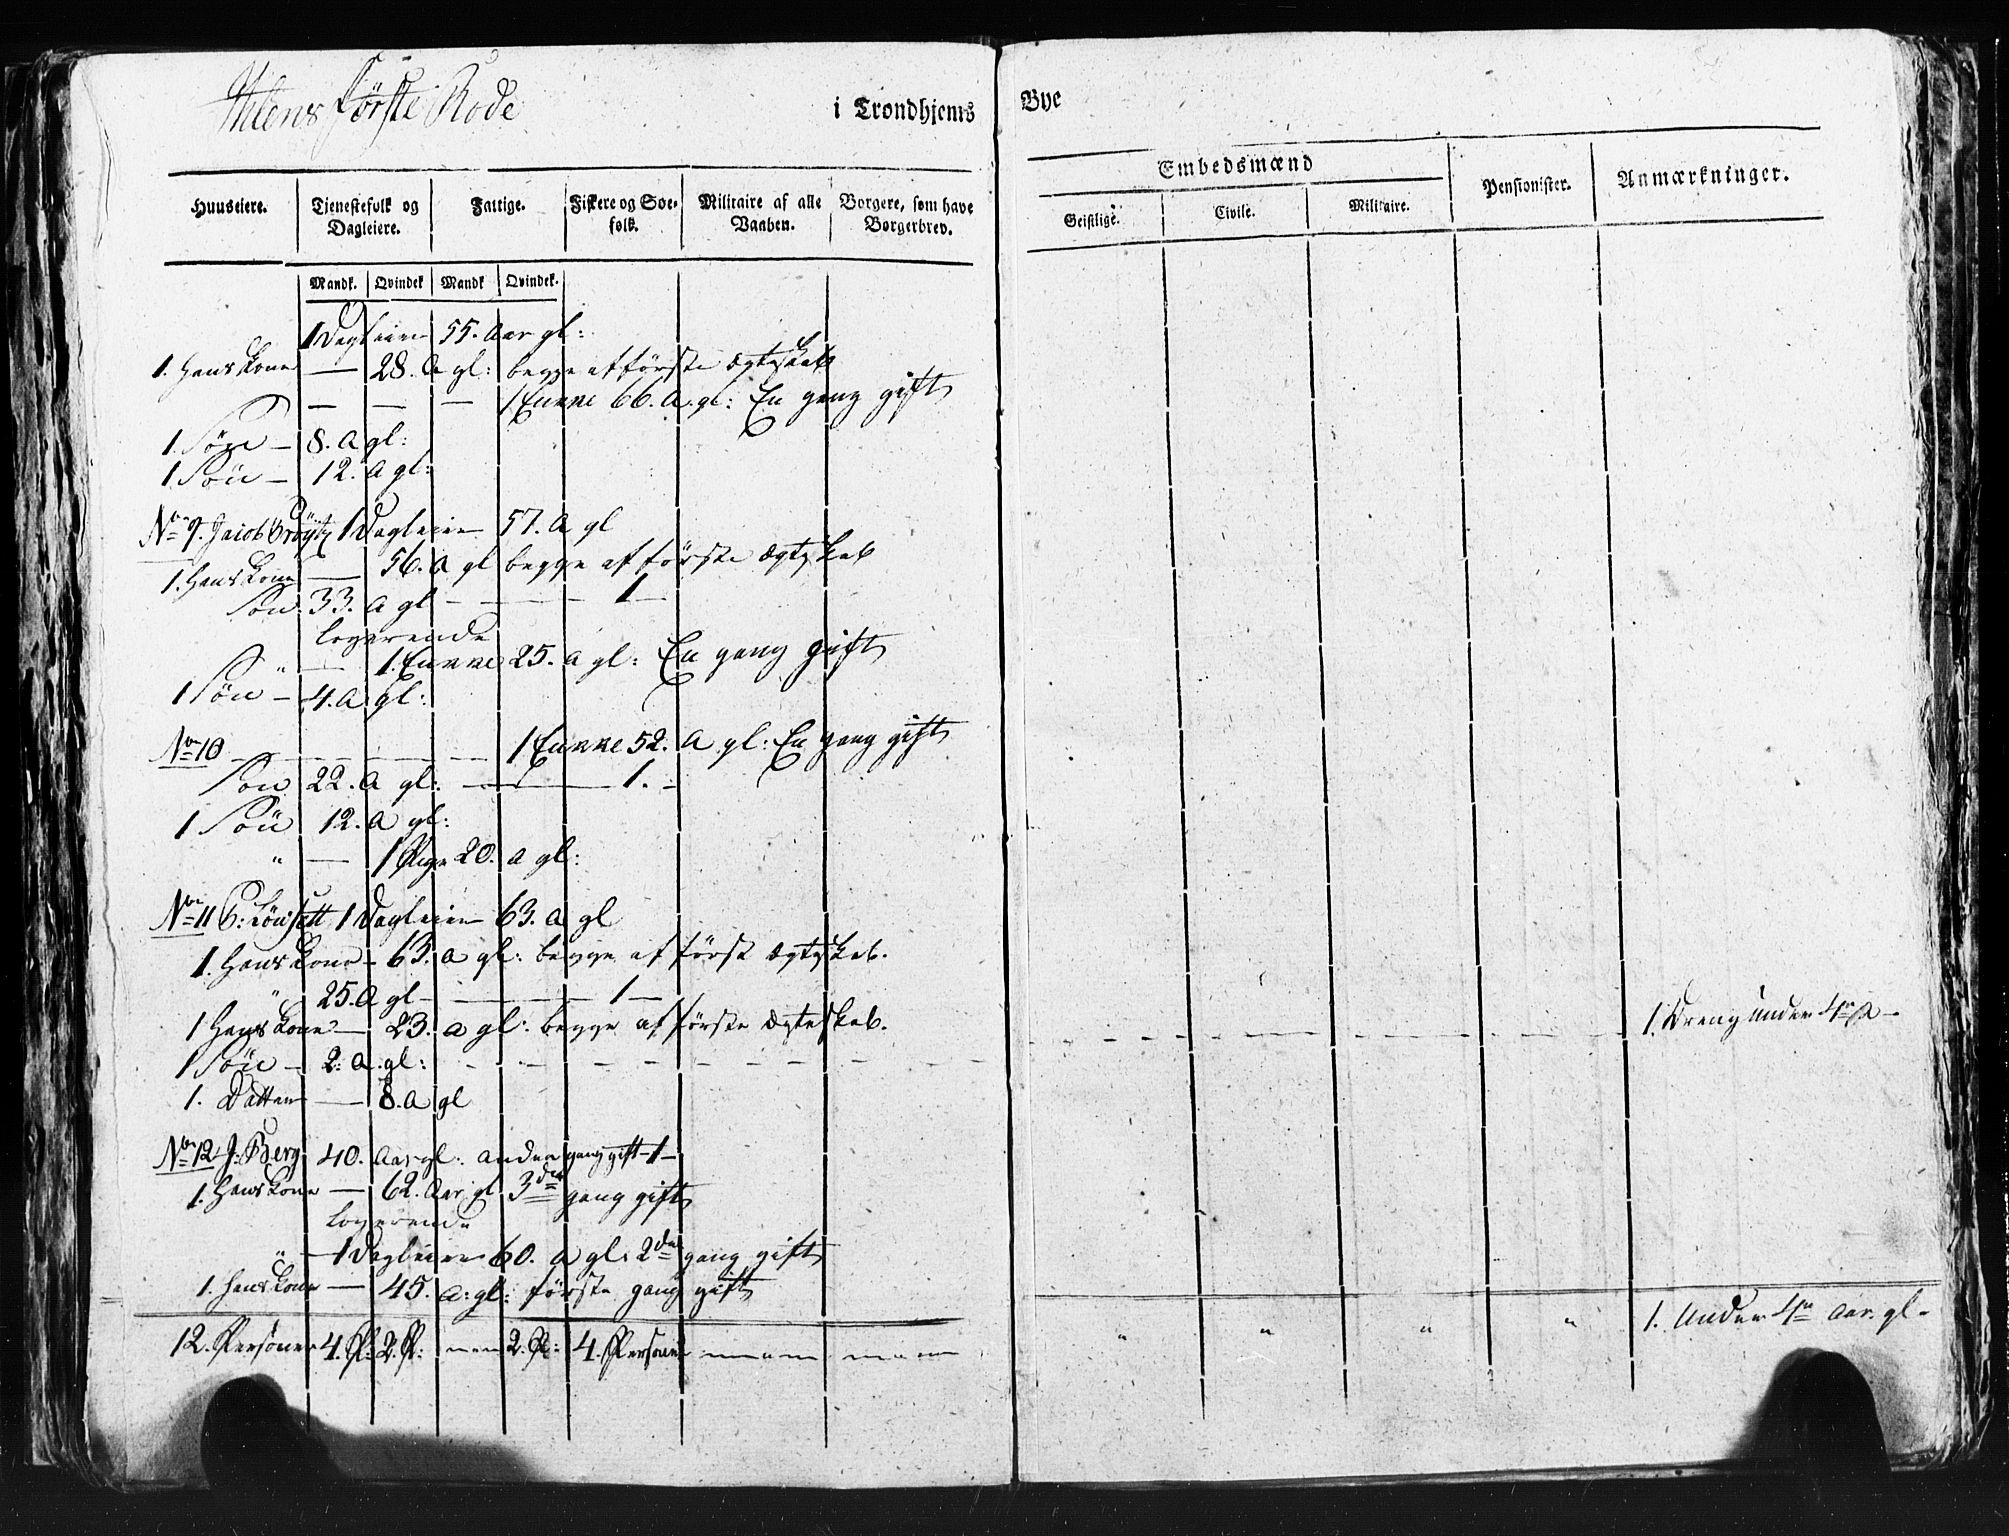 Ihlens første Rode
i Trondhjems Bye
Embedsmænd
Huuseiere. Tjenestefolk og Dagleiere. Fattige. Fiskere og Søefolk. Militaire af alle Vaaben. Borgere, som have Borgerbrev. Geistlige. Civile. Militaire. Pensionister. Anmærkninger.
Mandk. Qvindek Mandk Qvindek.
1 Dagleier 55. Aar gl:
1. Hans Kone — 28. A gl: begge af første Ægteskab
— — — 1 Enkke 66. A. gl: En gang gift
1. Søn — 8. A gl:
1 Søn — 12. A gl:
No 9. Jacob 1 Dagleier 57. A gl
1. Hans Kone — 56. A gl begge af første Ægteskab
Søn 33. A gl — — — 1 —
logerende
" — 1. Enkke 25. A gl: En gang gift
1 Søn — 4. A gl:
No 10 — — — — 1 Enkke 52. A gl: En gang gift
Søn 22. A gl: — — 1. —
1 Søn 12. A gl:
" — 1 Pige 20. A gl:
No 11 1 Dagleier 63. A gl
1. Hans Kone — 63. A gl: begge af først Ægteskab.
" 25. A gl — — — 1 —
1 Hans Kone — 23. A gl: begge af første Ægteskab.
1 Søn — 2. A. gl: — — — — — — — — 1. Dreng under 4re A —
1. Datter — 8. A gl
No 12 J. Berg 40. Aar gl: anden gang gift — 1 —
1. Hans Kone — 62. Aar gl 3de gang gift
logerende
" — 1 Dagleier 60. A gl: 2den gang gift
1. Hans Kone — 45. A: gl: første gang gift
12. Personer 4. P: 2. P: 2. P: 4. Personer " " " " 1. Under 4re Aar. gl —